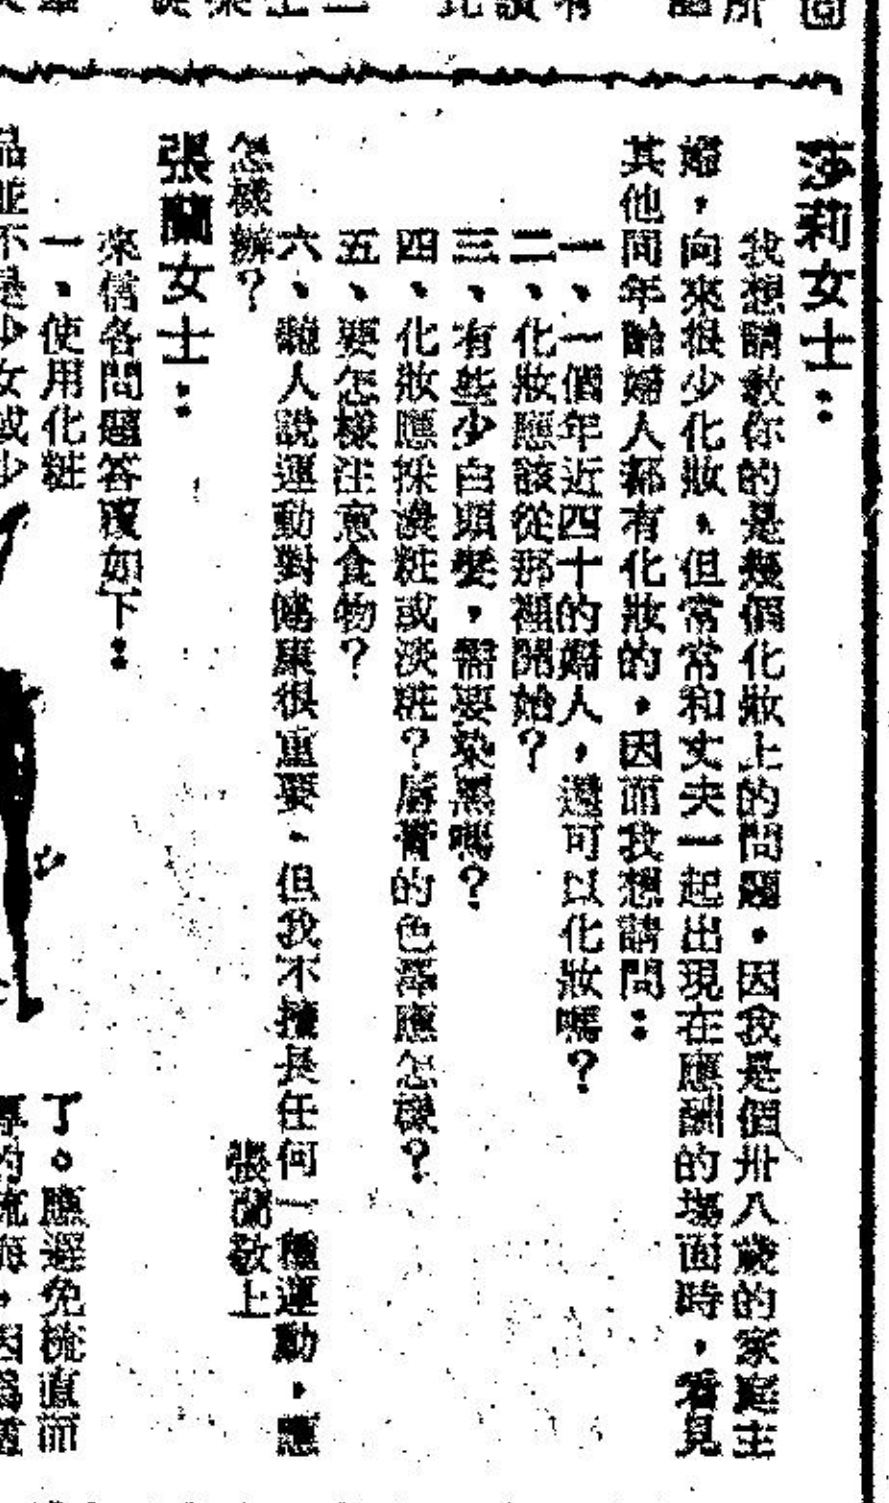 莎莉女士：
我想請教你的是幾個化妝上的問題，因我是個卅八歲的家庭主
婦，向來很少化妝，但常常和丈夫一起出現在應酬的場面時，看見
其他同年齡婦人都有化妝的，因而我想請問：
一、一個年近四十的婦人，還可以化妝嗎？
二、化妝應該從那裡開始？
三、有些少白頭髮，需要染黑嗎？
四、化妝應採濃粧或淡粧？唇膏的色澤應怎樣？
五、要怎樣注意食物？
六、聽人說運動對健康很重要，但我不擅長任何一種運動，應
怎樣辦？
張蘭敬上
張蘭女士：
來信各問題答覆如下：
一、使用化粧
品並不是少女或少
了。應避免梳直而